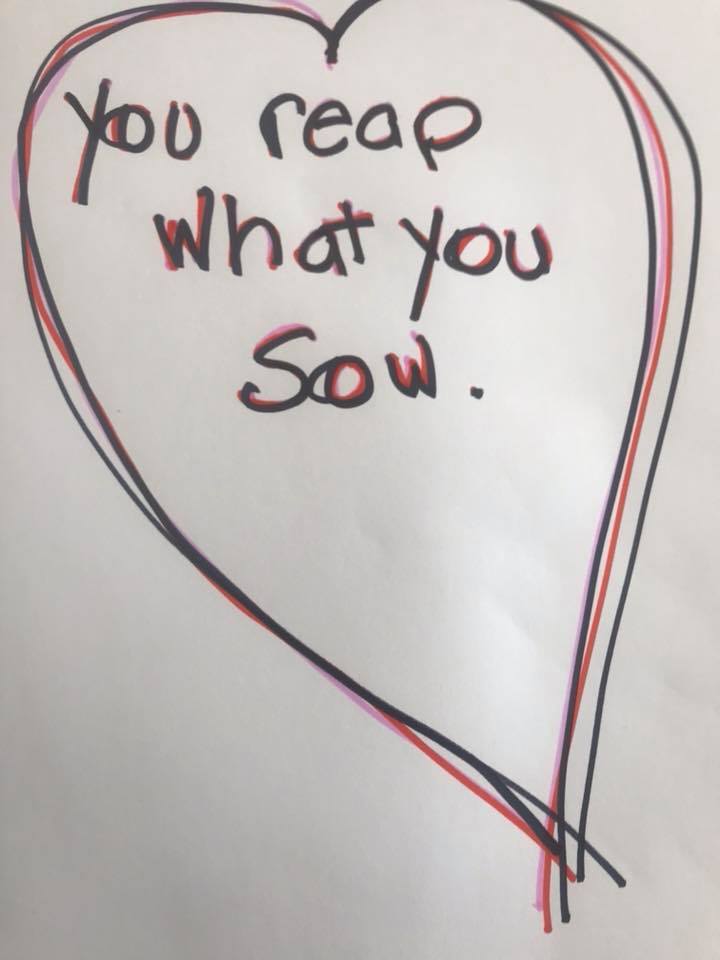 you reap
what you
sow.